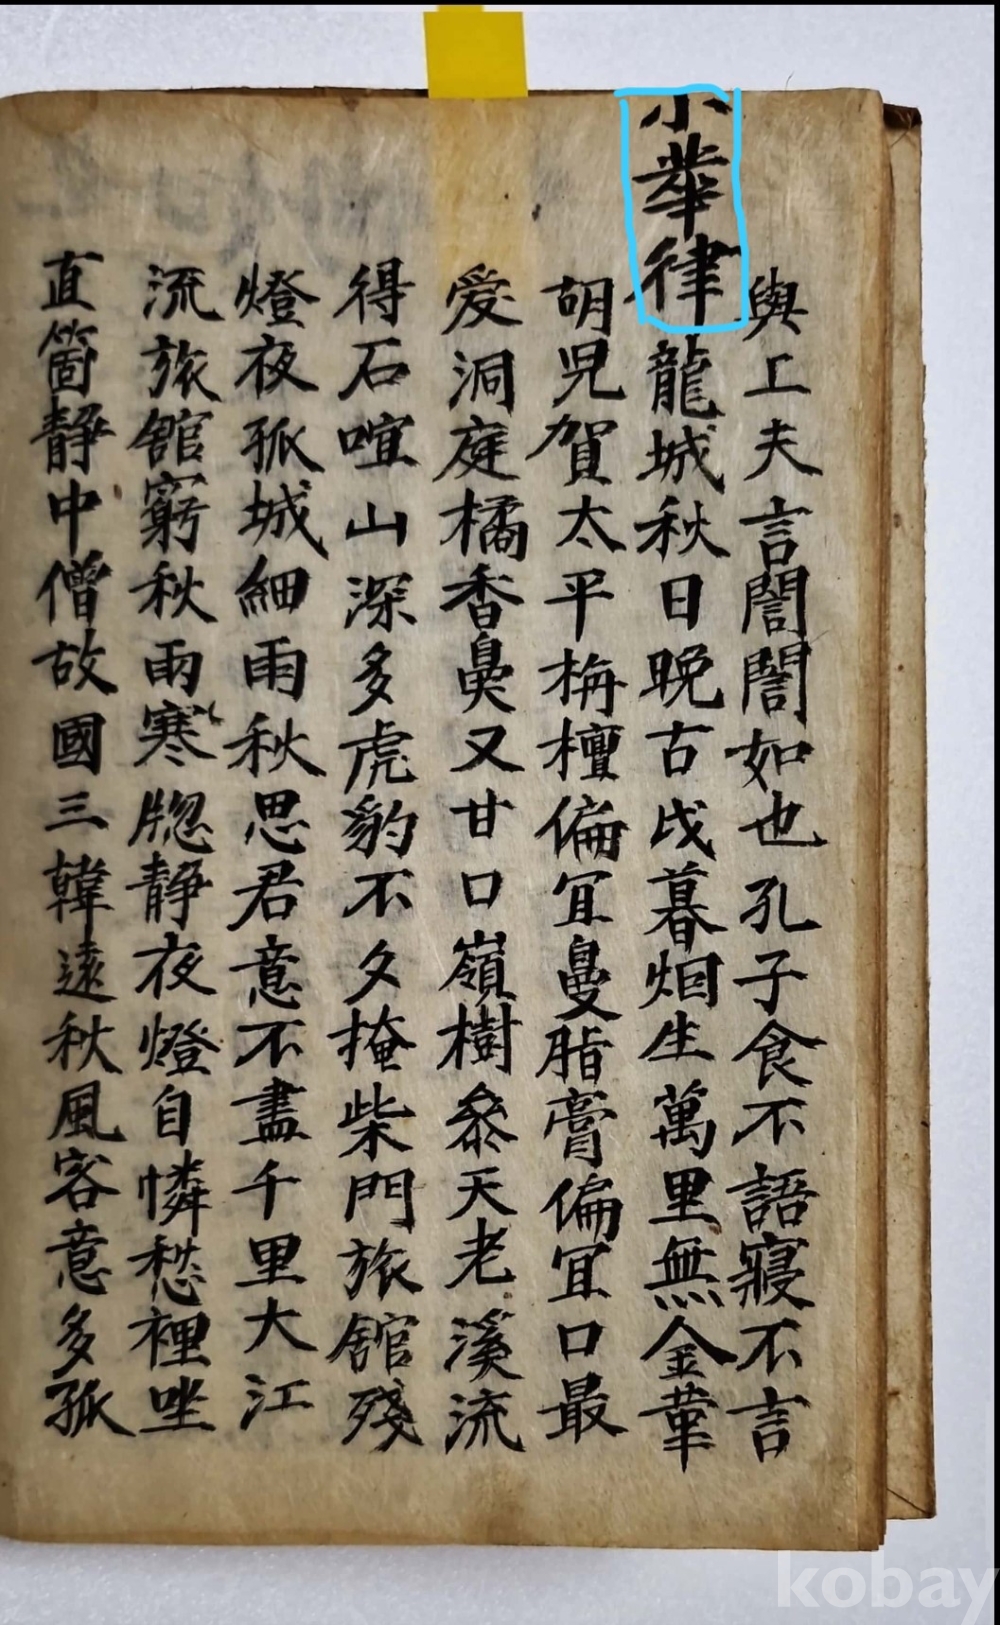 與上夫言誾誾如也孔子食不語寢不言
小華律龍城秋日晩古戍暮烟生萬里無金革
胡児賀太平栴檀偏冝鼻脂膏偏冝口最
愛洞庭橘香鼻又甘口嶺樹叅天老溪流
得石喧山深多虎豹不夕掩柴門旅舘殘
燈夜孤城細雨秋思君意不盡千里大江
流旅舘窮秋雨寒牎静夜燈自憐愁裡坐
直箇静中僧故國三韓遠秋風客意多孤
kobay